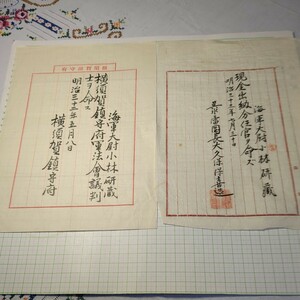 海軍大尉小林研藏
横須賀鎮守府軍法會議判
士ヲ命ス
明治三十三年五月八日
横須賀鎮守府
海軍大尉小林研藏
現金出納分任官ヲ命ス
明治三十三年七月三十日
大久保喜造